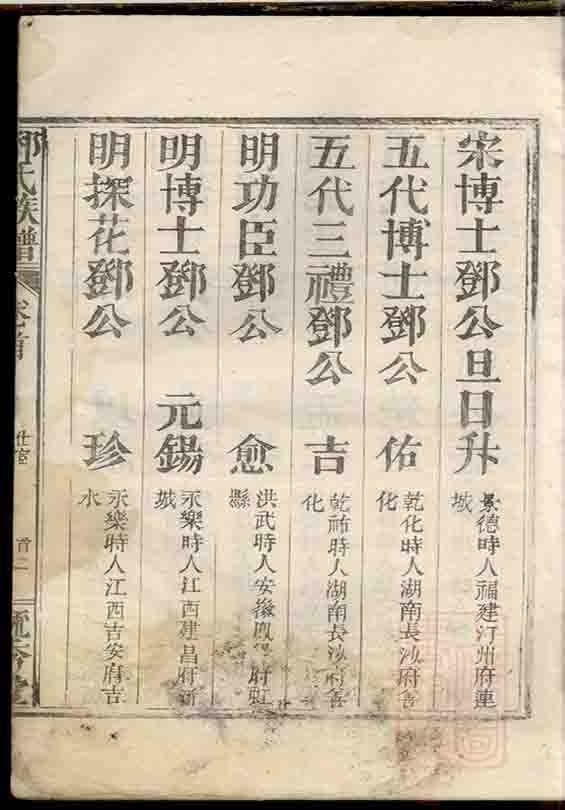 宋博士鄧公旦日升 景德時人福建汀州府連
城
五代博士鄧公 佑 乾化時人湖南長沙府善
化
五代三禮鄧公 吉 乾祐時人湖南長沙府善
化
明功臣鄧公 愈 洪武時人安徽鳳 府虹
縣
明博士鄧公 元錫 永樂時人江西建昌府新
城
明探花鄧公 珍 永樂時人江西吉安府吉
水
鄧氏族譜 卷首 首二